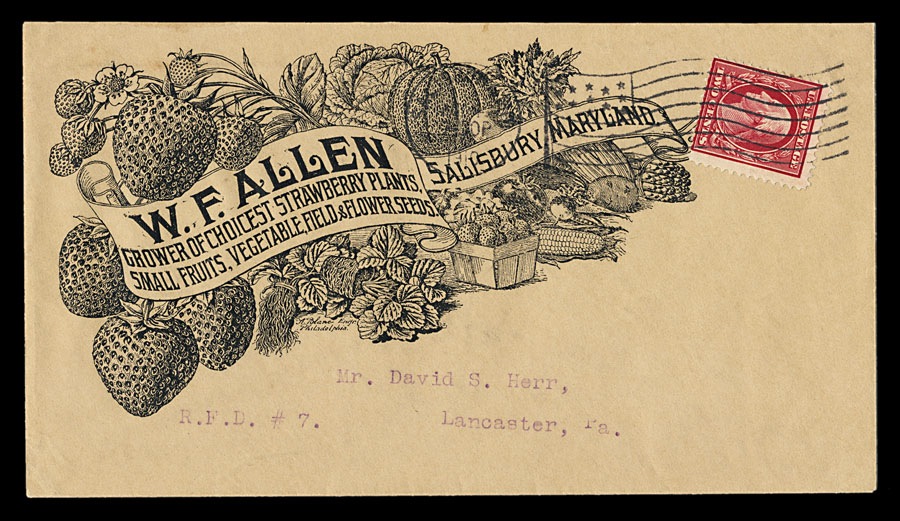 W. F. ALLEN
GROWER OF CHOICEST STRAWBERRY PLANTS,
SMALL FRUITS, VEGETABLE, FIELD & FLOWER SEEDS.
SALISBURY, MARYLAND.
A. Blanc Engr.
Philadelphia.
U.S. POSTAGE
TWO CENTS
Mr. David S. Herr,
R.F.D. # 7. Lancaster, Pa.